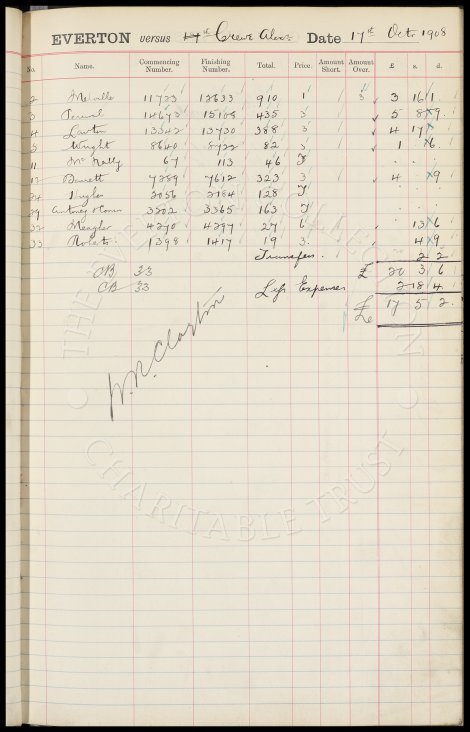 EVERTON versus Crewe Alex Date 17th Oct 1908
No. Name. Commencing Number. Finishing Number. Total. Price. Amount Short. Amount Over. £ s. d.
2 Melville 11723 12633 910 1 3 3 16 1
3 14673 15108 435 3 5 8 9
4 Lawton 13342 13730 388 3 4 17
5 Wright 8640 8722 82 3 1 6
11 McNally 67 113 46 T
12 Bennett 7289 7612 323 3 4 9
24 Taylor 2056 2184 128 T
29 3202 3365 163 T
32 Meagler 4270 4297 27 6 13 6
33 Roberts 1398 1417 19 3 4 9
Transfers. 2 2
CB 33 £ 20 3 6
CB 33 Less Expenses 2 18 4
£ 17 5 2
W.R. Clayton
THE EVERTON COLLECTION
CHARITABLE TRUST